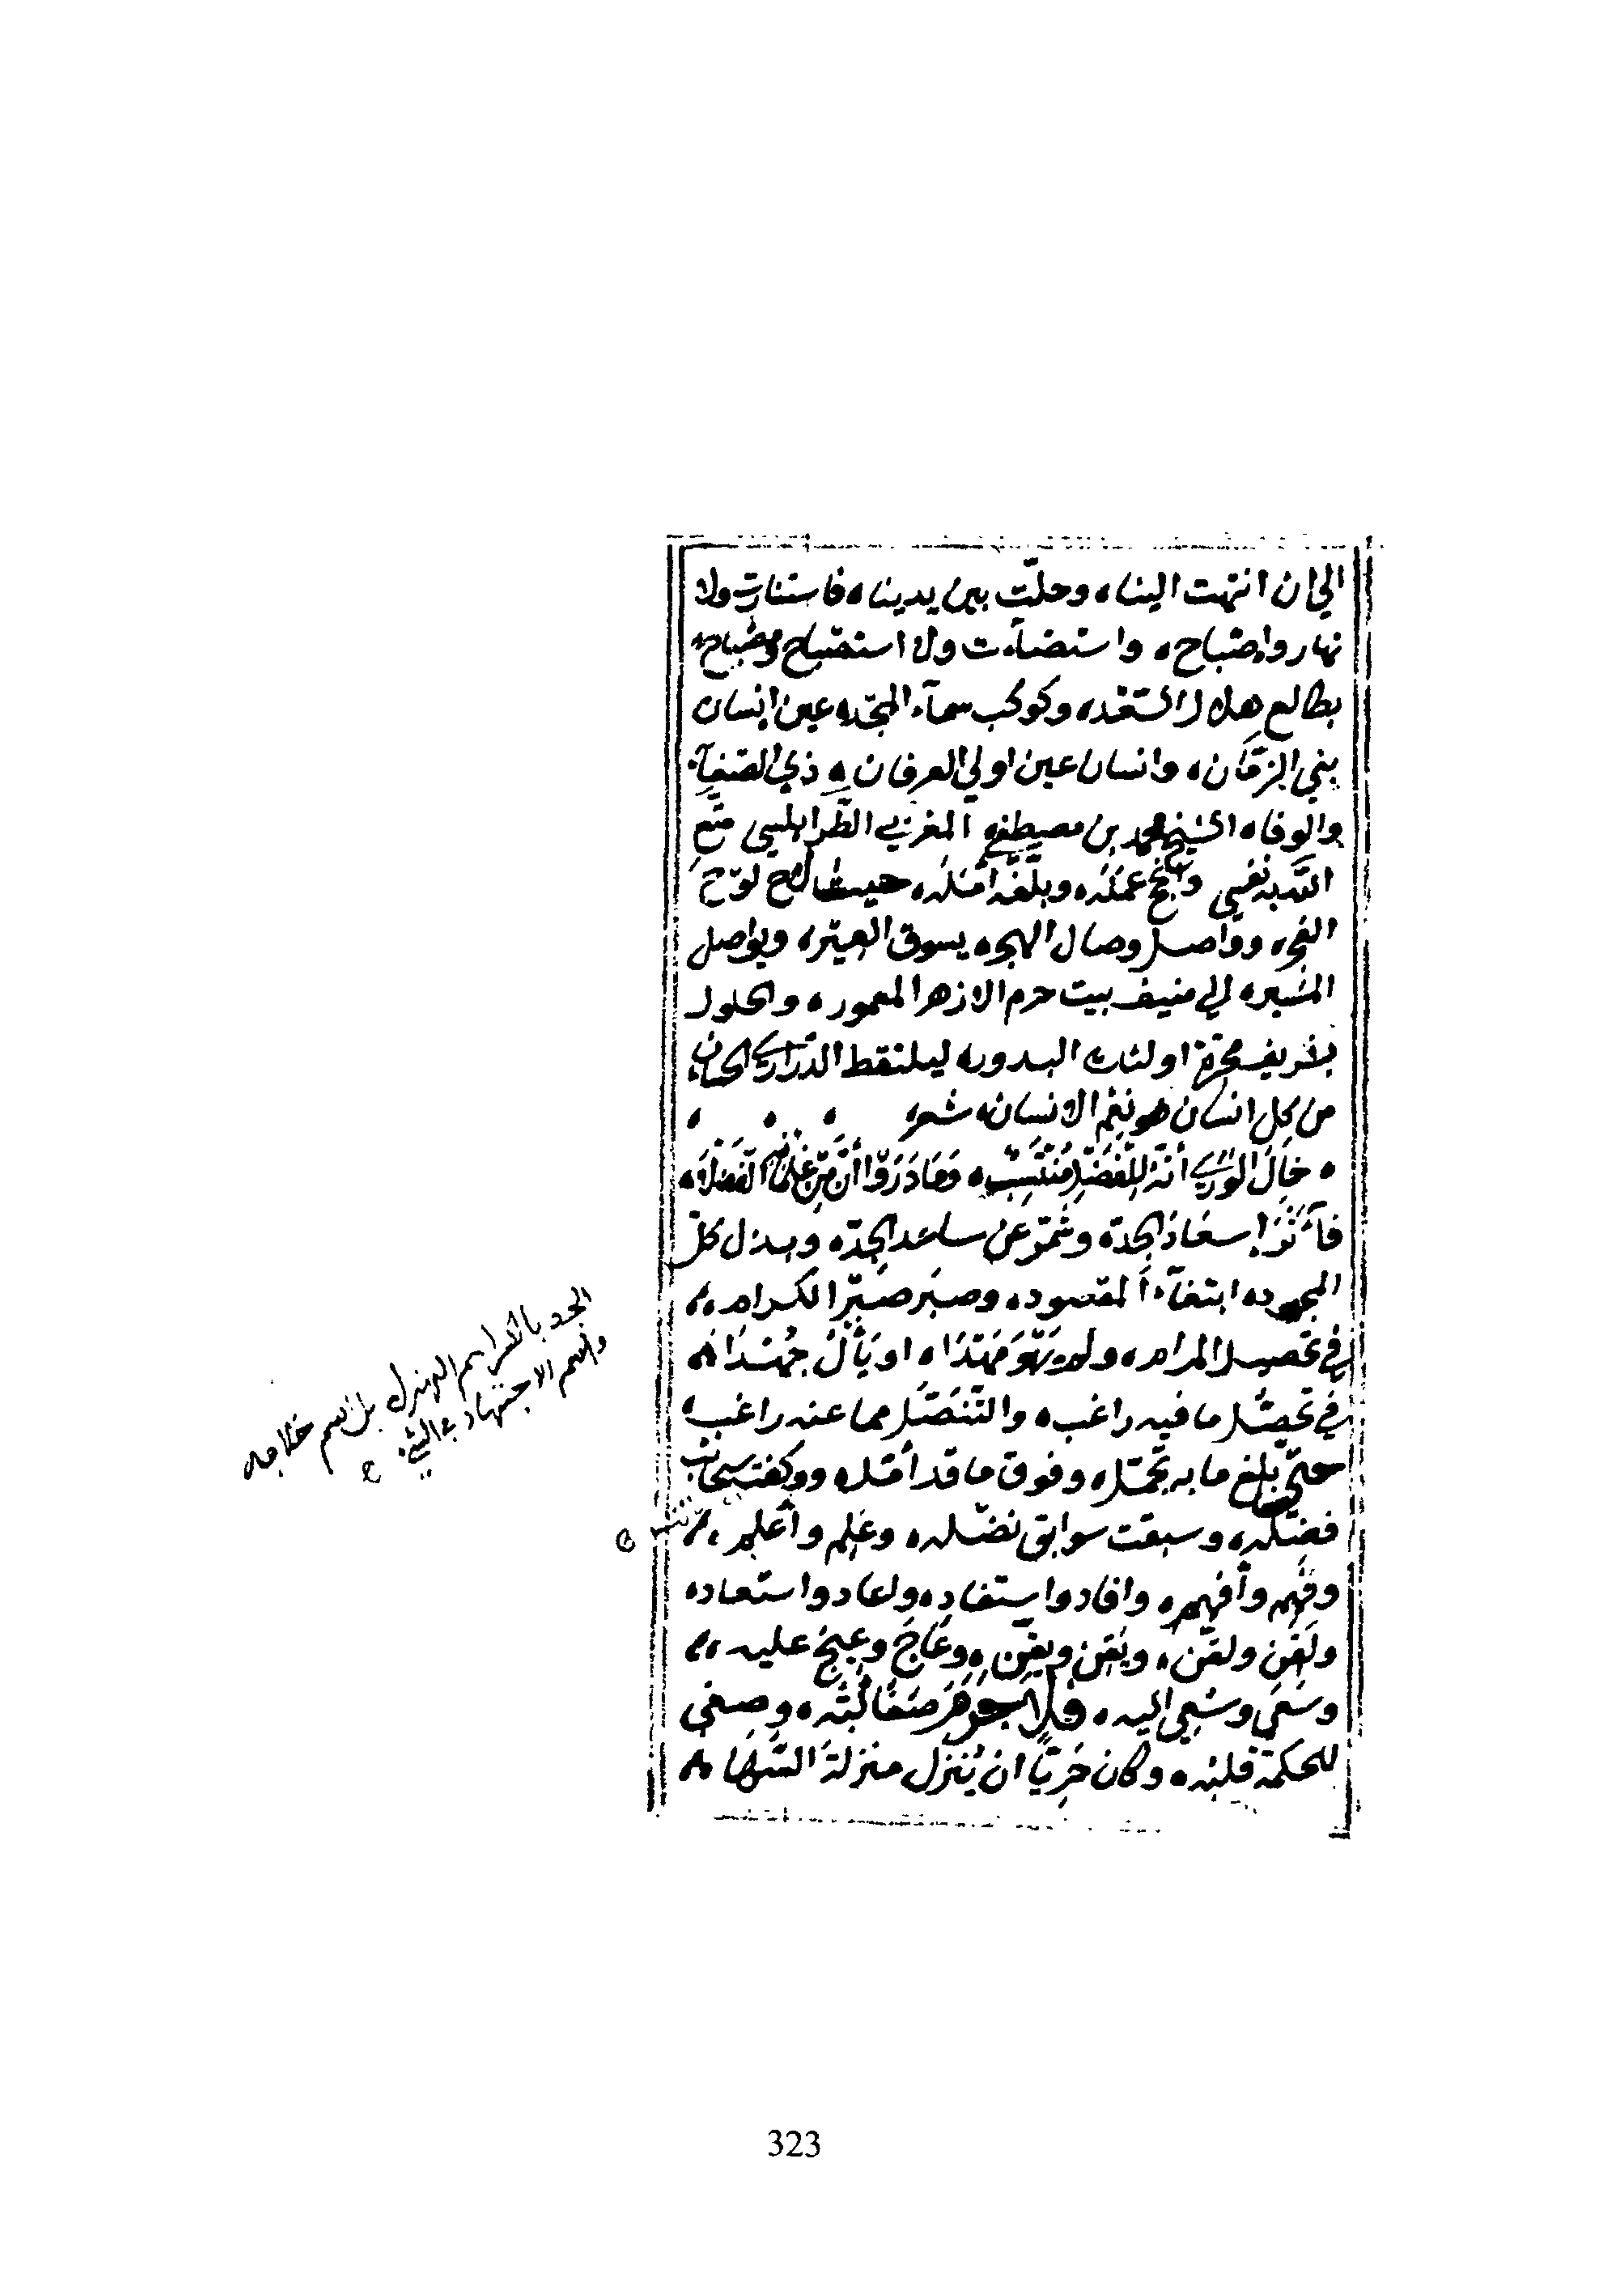 الي ان انتهت الينا، وحلّت بين يدينا، فاستنارت ولا
نهار واصباح، واستضآءت ولا استصباح ومصباح
بطالع هلال السّعْد، وكوكب سمآء المجد، عين انسان
بني الزمان، وانسان عين اولي العرفان، ذي الصّفآء
والوفاء الشيخ محمد بن مصطفى المغربي الطرابلسي متّع
اللّه به نفسي وانجح عمَلَه، وبلّغه أمَلَه، حيث لاح لوح
الفجر، وواصل وصال الهجر، يسوق العير، ويواصل
السير، الي منيف بيت حرم الازهر المعمور، والحلول
بشريف اولئك البدور، ليلتقط الدراري الحسان،
من كل انسان هو نعم الانسان، شعر
خالَ الورى أنّه للفضل منتسب، وما دروا أنّ من الفضلا،
فآثر إسعاد الجد، وشمّر عن ساعد الجِدّ، وبذل كلّ
المجهود، ابتغآء المقصود، وصبَر صبْر الكرام،
في تحصيل المرام، ولم او يأل جُهْدا،
في تحصّل ما فيه راغب، والتّنصّل مما عنه راغب،
حتّى بلغ ما به تجمّل، وفوق ما قد أمّل، ووكفت سحائب
فضله، وسبقت سوابق نضله، وعَلِم وأعلم،
وفهم وأفهم، وافاد واستفاد، واعاد واستعاد،
ولَقِن ولقّن، ويقِن ويقّن، وعاج وعيج عليه،
وسَعَى وسُعِي اليه، فلا جرم صفا لُبّه، وصغى
للحكمة قلبه، وكان حَرِيّا ان يُنزل منزلة السُّها،
الجد بالكسر اسم الهزل بل اسم خلافه
واسم الاجتهاد في الشيء
323